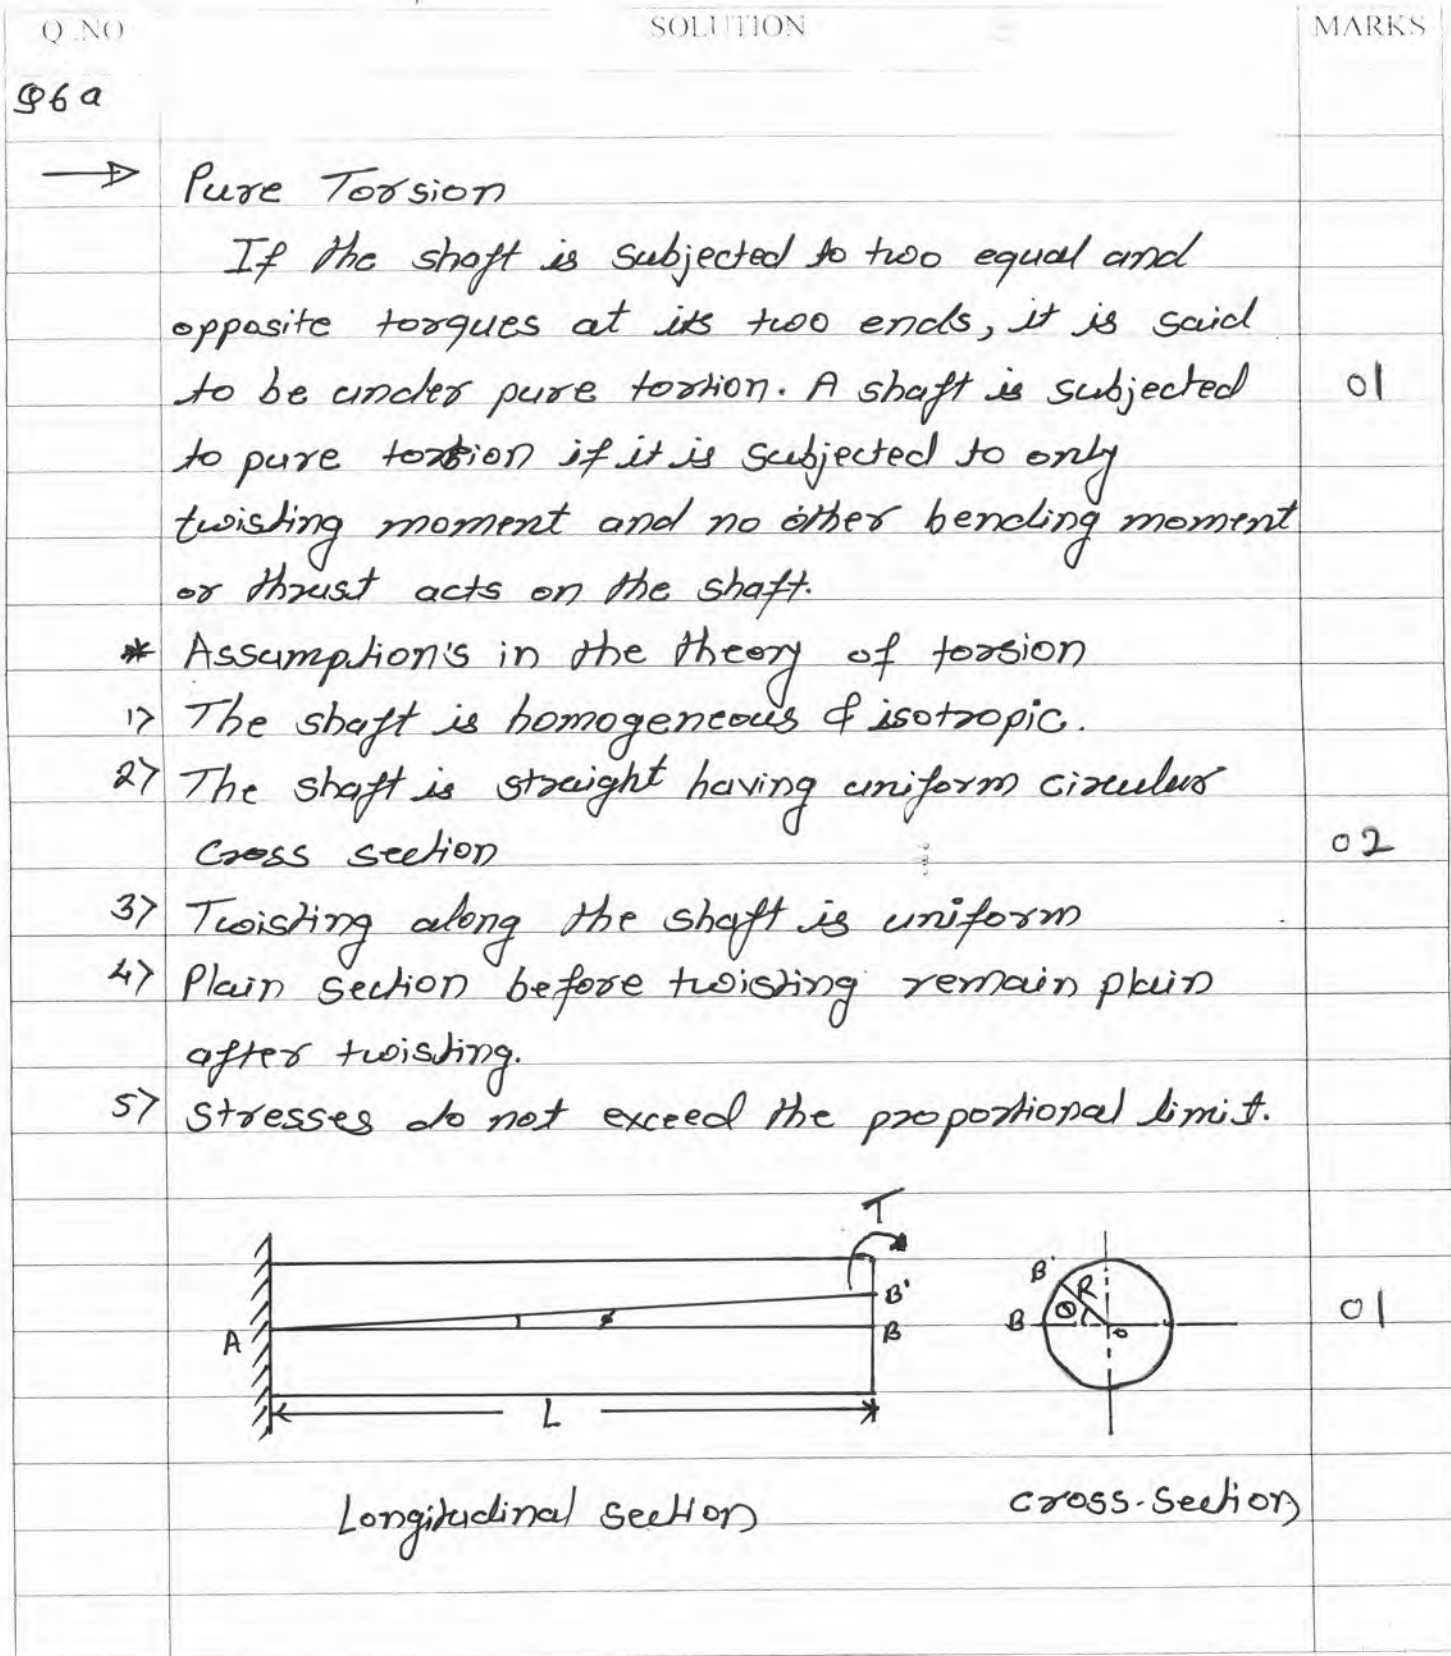 Q.NO SOLUTION MARKS
Q6a
Pure Torsion
If the shaft is subjected to two equal and
opposite torques at its two ends, it is said
to be under pure tortion. A shaft is subjected 01
to pure tortion if it is subjected to only
twisting moment and no other bending moment
or thrust acts on the shaft.
* Assumption's in the theory of torsion
1> The shaft is homogeneous & isotropic.
2> The shaft is straight having uniform circular
cross section 02
3> Twisting along the shaft is uniform
4> Plain section before twisting remain plain
after twisting.
5> Stresses do not exceed the proportional limit.
T
B' B' R
A ϕ B B θ o 01
L
Longitudinal section cross-section